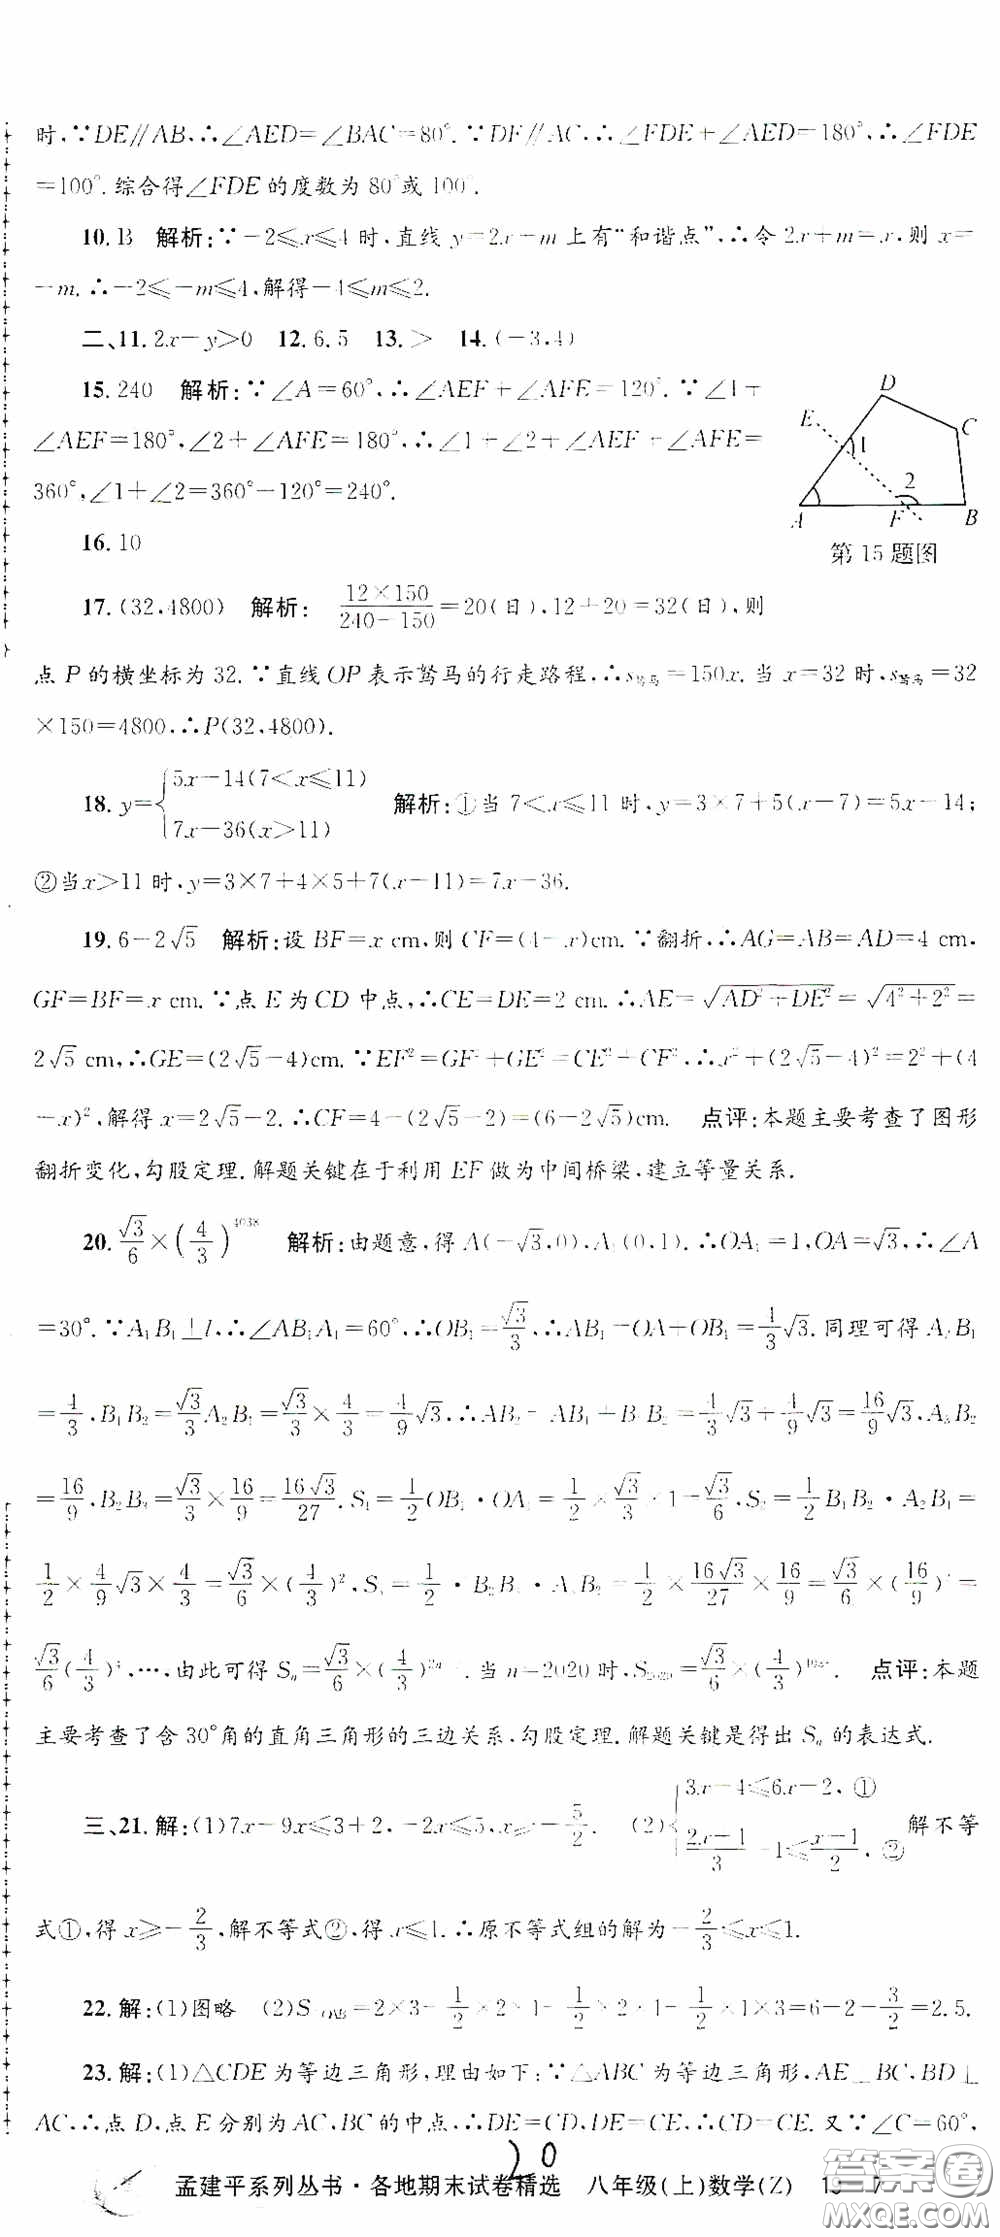 时,∵DE∥AB,∴∠AED=∠BAC=80°.∵DF∥AC,∴∠FDE+∠AED=180°,∴∠FDE
=100°.综合得∠FDE的度数为80°或100°.
10.B 解析:∵-2≤x≤4时,直线y=2x+m上有“和谐点”,∴令2x+m=x,则x=
-m.∴-2≤-m≤4,解得-4≤m≤2.
二、11.2x-y>0 12.6.5 13.> 14.(-3,4)
15.240 解析:∵∠A=60°,∴∠AEF+∠AFE=120°.∵∠1+
∠AEF=180°,∠2+∠AFE=180°,∴∠1+∠2+∠AEF+∠AFE=
360°,∠1+∠2=360°-120°=240°.
D
E
C
1
2
A
F
B
第15题图
16.10
17.(32,4800) 解析: 12×150/(240-150)=20(日),12+20=32(日),则
点P的横坐标为32.∵直线OP表示驽马的行走路程,∴s驽马=150x.当x=32时,s驽马=32
×150=4800,∴P(32,4800).
18.y={5x-14(7<x≤11)
7x-36(x>11) 解析:①当7<x≤11时,y=3×7+5(x-7)=5x-14;
②当x>11时,y=3×7+4×5+7(x-11)=7x-36.
19.6-2√5 解析:设BF=x cm,则CF=(4-x)cm.∵翻折,∴AG=AB=AD=4 cm,
GF=BF=x cm.∵点E为CD中点,∴CE=DE=2 cm.∴AE=√(AD²+DE²)=√(4²+2²)=
2√5 cm,∴GE=(2√5-4)cm.∵EF²=GF²+GE²=CE²+CF²,∴x²+(2√5-4)²=2²+(4
-x)²,解得x=2√5-2.∴CF=4-(2√5-2)=(6-2√5)cm. 点评:本题主要考查了图形
翻折变化,勾股定理.解题关键在于利用EF做为中间桥梁,建立等量关系.
20.√3/6×(4/3)⁴⁰³⁸ 解析:由题意,得A(-√3,0),A₁(0,1).∴OA₁=1,OA=√3,∴∠A
=30°.∵A₁B₁⊥l,∴∠AB₁A₁=60°,∴OB₁=√3/3,∴AB₁=OA+OB₁=4/3√3.同理可得A₂B₁
=4/3,B₁B₂=√3/3A₂B₁=√3/3×4/3=4/9√3,∴AB₂=AB₁+B₁B₂=4/3√3+4/9√3=16/9√3,A₃B₂
=16/9,B₂B₃=√3/3×16/9=16√3/27.S₁=1/2OB₁·OA₁=1/2×√3/3×1=√3/6,S₂=1/2B₁B₂·A₂B₁=
1/2×4/9√3×4/3=√3/6×(4/3)²,S₃=1/2·B₂B₃·A₃B₂=1/2×16√3/27×16/9=√3/6×(16/9)²=
√3/6(4/3)⁴,…,由此可得Sₙ=√3/6×(4/3)²ⁿ⁻².当n=2020时,S₂₀₂₀=√3/6×(4/3)⁴⁰³⁸. 点评:本题
主要考查了含30°角的直角三角形的三边关系,勾股定理.解题关键是得出Sₙ的表达式.
三、21.解:(1)7x-9x≤3+2,-2x≤5,x≥-5/2. (2){3x-4≤6x-2,①
(2x-1)/3-1≤(x-1)/2,② 解不等
式①,得x≥-2/3,解不等式②,得x≤1.∴原不等式组的解为-2/3≤x≤1.
22.解:(1)图略 (2)S△OAB=2×3-1/2×2×1-1/2×2×1-1/2×1×3=6-2-3/2=2.5.
23.解:(1)△CDE为等边三角形,理由如下:∵△ABC为等边三角形,AE⊥BC,BD⊥
AC,∴点D,点E分别为AC,BC的中点,∴DE=CD,DE=CE,∴CD=CE.又∵∠C=60°,
20
孟建平系列丛书·各地期末试卷精选 八年级(上)数学(Z)
答案圈
MXQE.COM